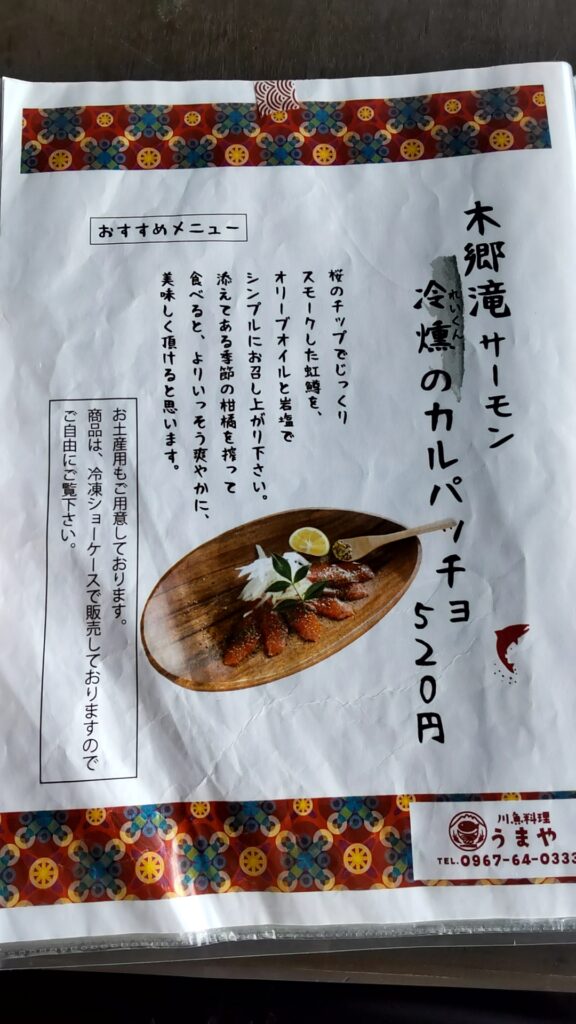 木郷滝サーモン
れいくん
冷燻のカルパッチョ 520円
おすすめメニュー
桜のチップでじっくり
スモークした虹鱒を、
オリーブオイルと岩塩で
シンプルにお召し上がり下さい。
添えてある季節の柑橘を搾って
食べると、よりいっそう爽やかに、
美味しく頂けると思います。
お土産用もご用意しております。
商品は、冷凍ショーケースで販売しておりますので
ご自由にご覧下さい。
川魚料理
うまや
TEL.0967-64-0333